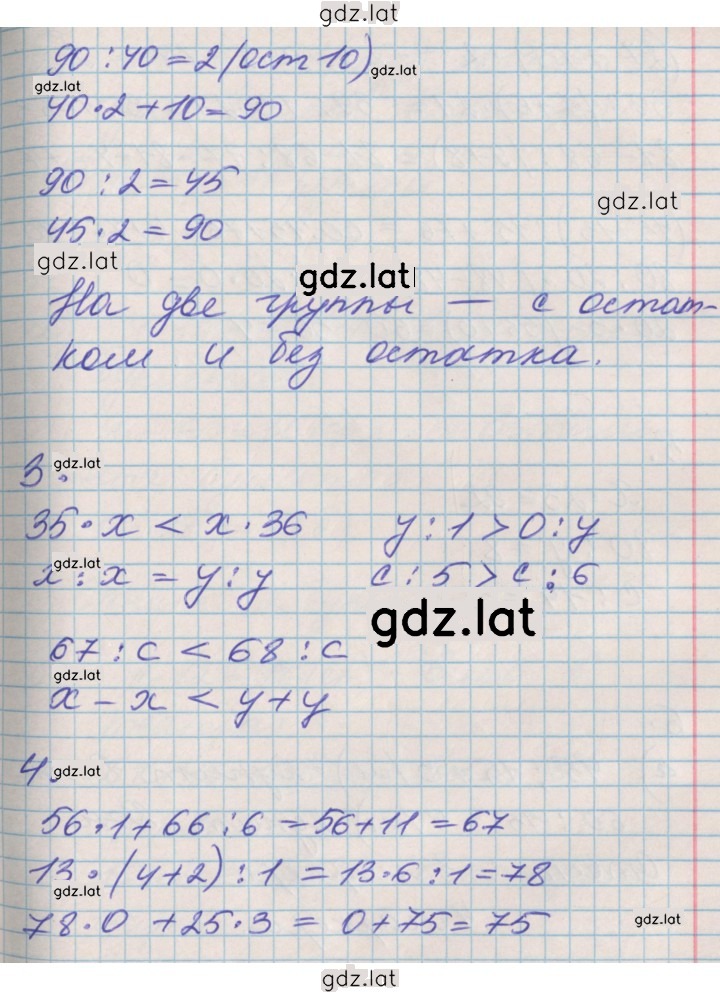 gdz.lat
90 : 40 = 2 (ост 10)
gdz.lat
gdz.lat
40 · 2 + 10 = 90
90 : 2 = 45
gdz.lat
45 · 2 = 90
gdz.lat
gdz.lat
На две группы — с остат-
ком и без остатка.
3. gdz.lat
35 · x < x · 36 y : 1 > 0 : y
gdz.lat
x : x = y : y c : 5 > c : 6
gdz.lat
67 : c < 68 : c
gdz.lat
x - x < y + y
4. gdz.lat
56 · 1 + 66 : 6 = 56 + 11 = 67
13 · (4 + 2) : 1 = 13 · 6 : 1 = 78
gdz.lat
78 · 0 + 25 · 3 = 0 + 75 = 75
gdz.lat
gdz.lat